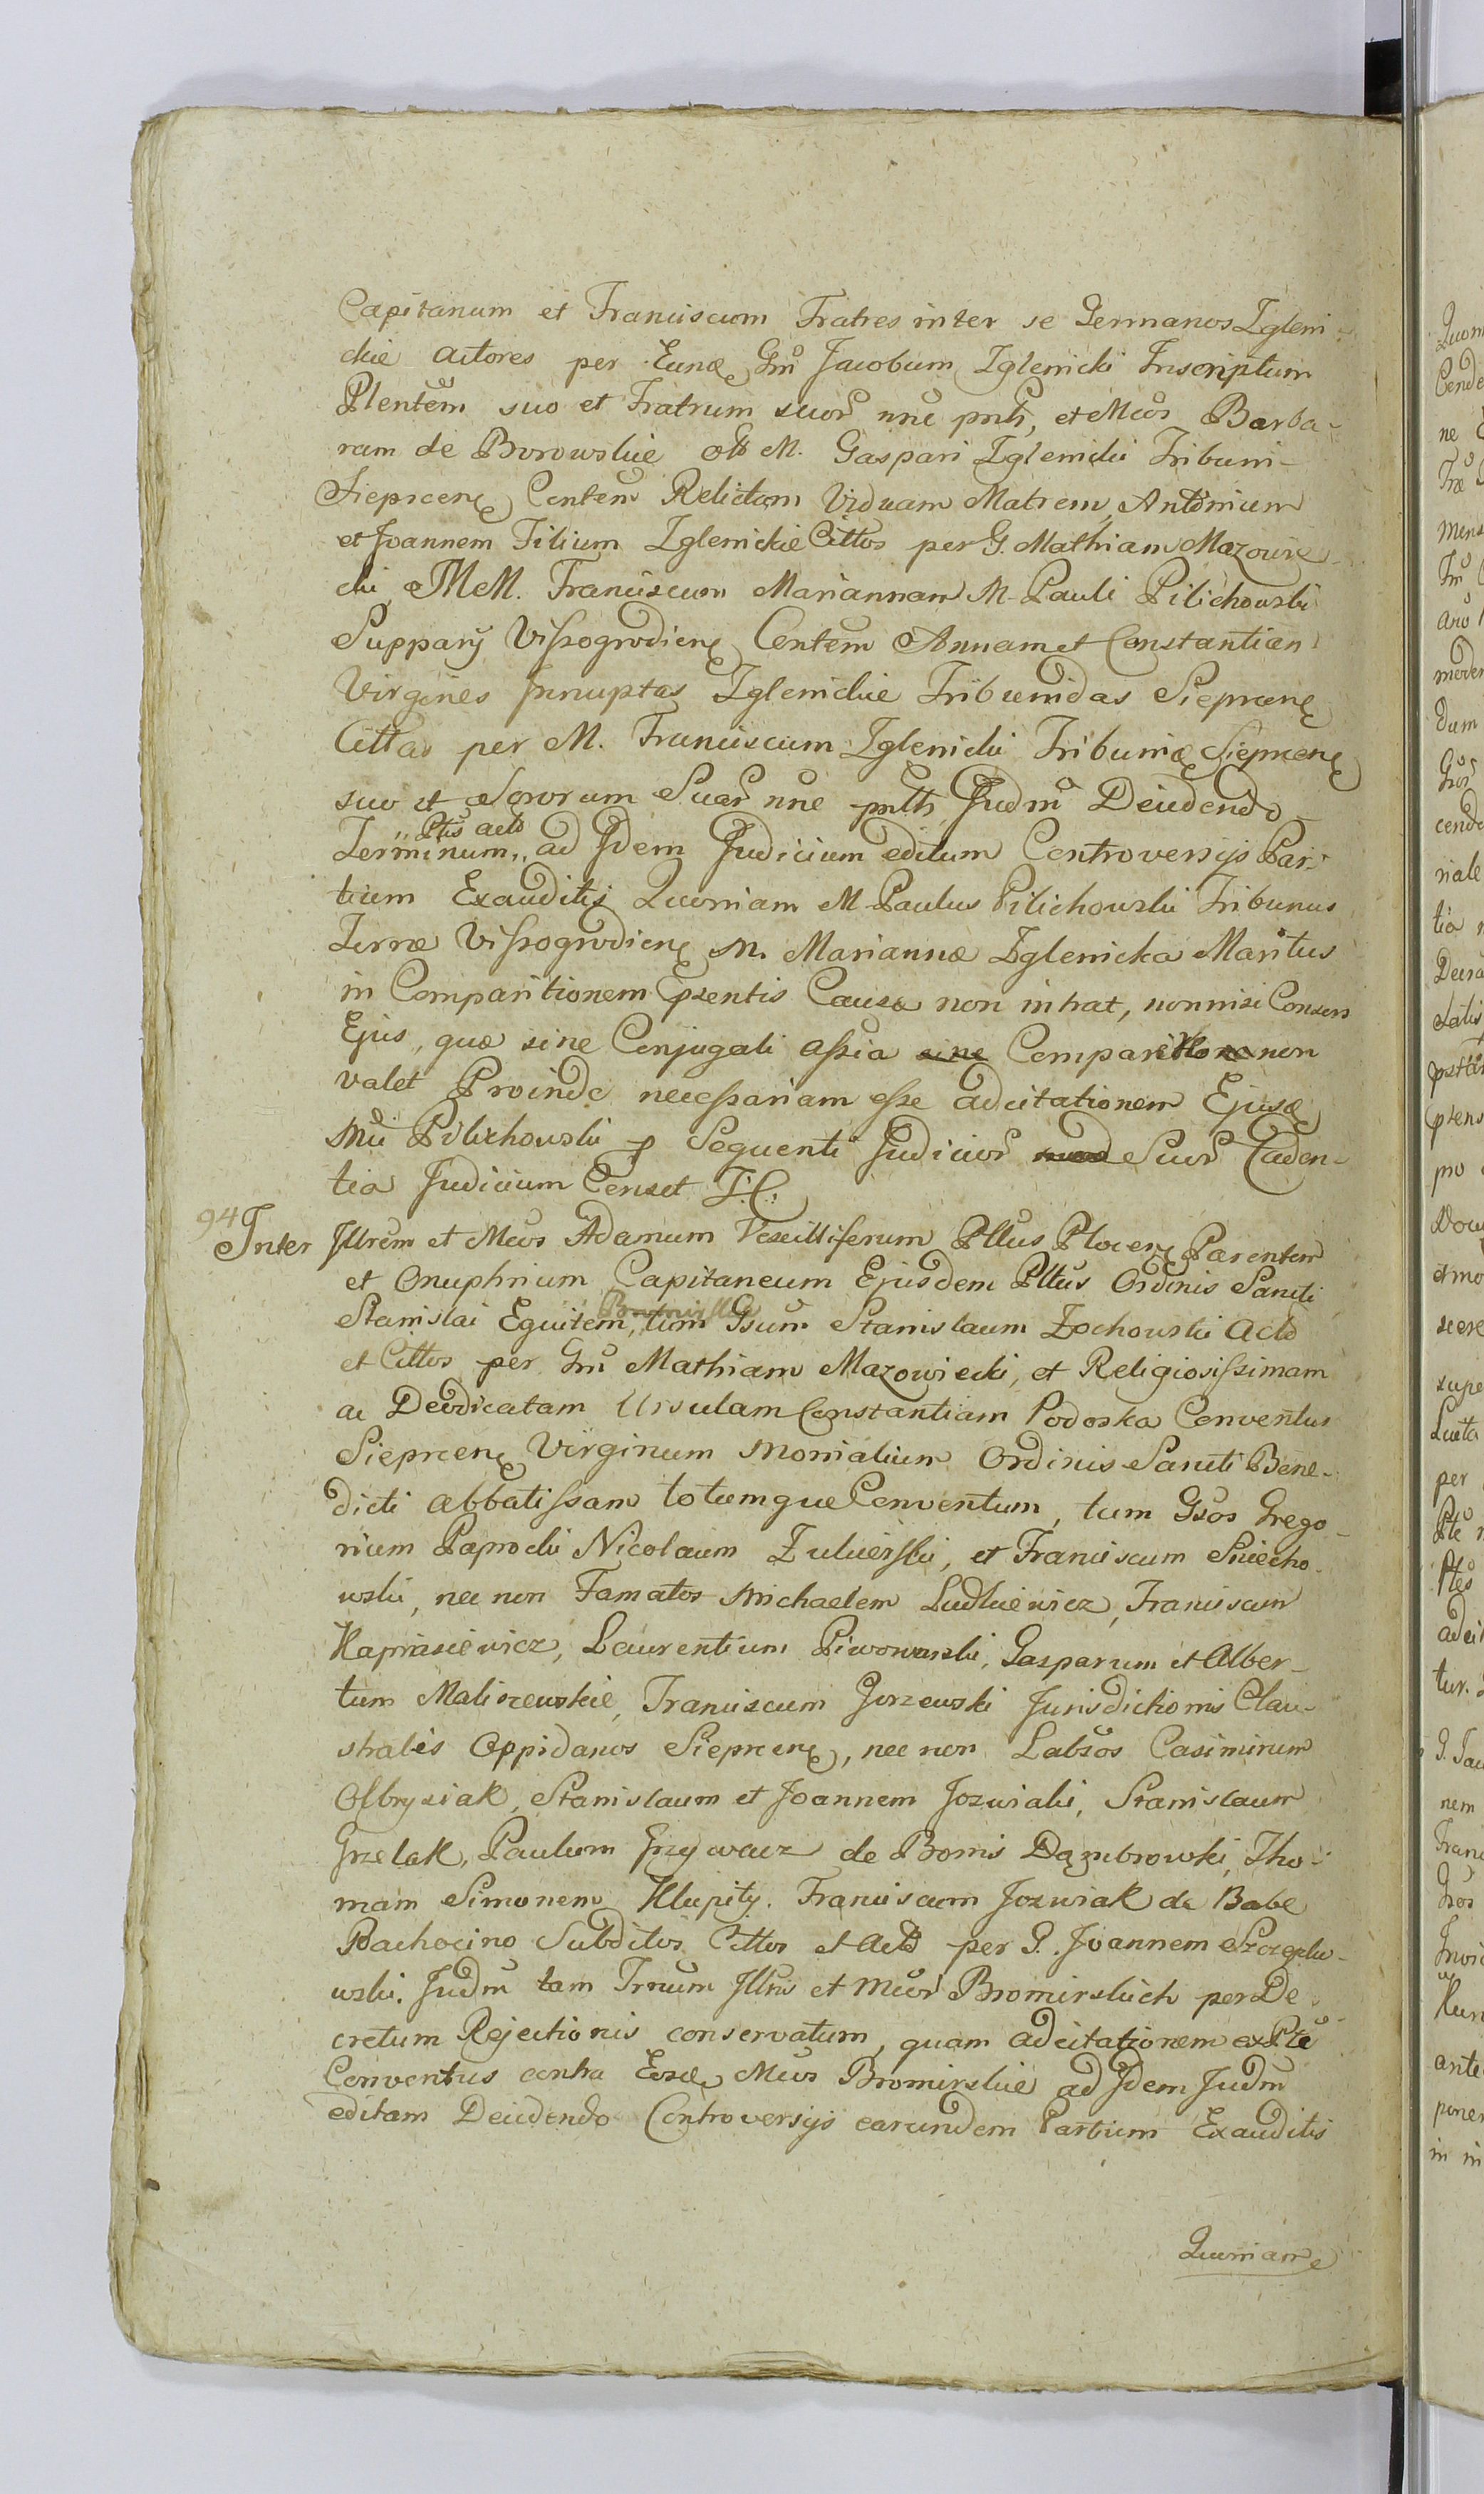 Capitanum et Franciscum Fratres inter se Germanos Zgleni-
ckie Actores per Eund Gnm Jacobum Zglenicki Inscriptum
Plentem suo et Fratrum suor nne pnth, et Mcos Barba-
ram de Borowskie olt M. Gaspari Zglenicki Tribuni-
Sieprcen Contem Relictam Viduam Matrem, Antonium
et Joannem Filium Zglenickie Cittos per G. Mathiam Mazowie-
cki, MM. Franciscum Mariannam M. Pauli Pilichowski
Supparij Vissogrodien Contem Annam et Constantiam
Virgines Innuptas Zglenickie Tribunidas Sieprcen
Cittas per M. Franciscum Zglenicki Tribunid Sieprcen
suo et Sororum Suar nne pnth Judm Deiudendo
Ptis acto
Terminum,, ad Idem Judicium editum Controversijs Par-
tium Exauditis Quoniam M. Paulus Pilichowski Tribunus
Terræ Vissogrodien M. Mariannæ Zglenicka Maritus
in Comparitionem Psentis Causæ non intrat, nonnisi Consors
Ejus, quæ sine Conjugali assia sine Comparitione non
valet Proinde necessariam esse adcitationem Ejusd
Mci Pilichowski p Sequenti Judicior Suor Caden-
tia Judicium Censet J.C.
94 Inter Illrem et Mcos Adamum Vexilliferum Pllus Plocen Parentem
et Onuphrium Capitaneum Ejusdem Pllus Ordinis Sancti
Bromirskie
Stanislai Equitem, tum Gsum Stanislaum Zochowski Acto
et Cittos per Gnm Mathiam Mazowiecki, et Religiosissimam
ac Deodicatam Ursulam Constantiam Podoska Conventus
Sieprcen Virginum Monialium Ordinis Sancti Bene-
dicti Abbatissam totumque Conventum, tum Gsos Grego-
rium Paprocki Nicolaum Zulwierski, et Franciscum Sniecho-
wski, nec non Famatos Michaelem Ludkiewicz, Franciscum
Kaprasiewicz, Laurentium Piwowarski, Gasparum et Alber-
tum Maliszewskie, Franciscum Gorzewski Jurisdictionis Clau-
stralis Oppidanos Sieprcen, nec non Labsos Casimirum
Olbrysiak, Stanislaum et Joannem Jozwiaki, Stanislaum
Grzelak, Paulum Grzywacz de Bonis Dąmbrowski, Tho-
mam Simonem Klupity. Franciscum Jozwiak de Babe
Pachocino Subditos Cittos et Acto per G. Joannem Szczepko-
wski. Judm tam Trnum Illris et Mcor Bromirskich per De-
cretum Rejectionis conservatum, quam adcitationem ex Pte
Conventus contra Eosd Mcos Bromirskie ad Idem Judm
editam Deiudendo Controversijs earundem Partium Exauditis
Quoniam